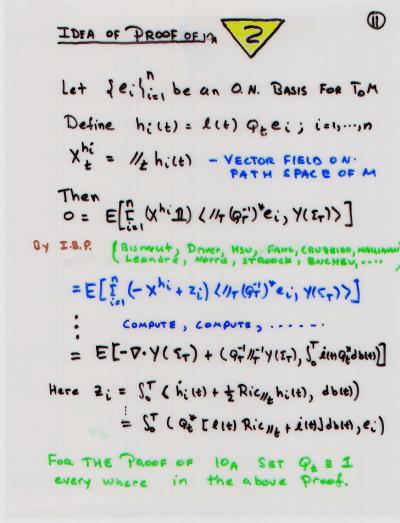 11
IDEA OF PROOF OF 10A 2
Let {ei}ⁿᵢ₌₁ be an O.N. BASIS FOR T₀M
Define hᵢ(t) = l(t) Qₜ eᵢ ; i=1,...,n
Xₜ^hi = //ₜ hᵢ(t) - VECTOR FIELD ON
PATH SPACE OF M
Then
0 = E[Σⁿᵢ₌₁ (X^hi 1) <//_T (Q_T⁻¹)* eᵢ, Y(Σ_T)>]
By I.B.P. (BISMUT, DRIVER, HSU, FANG, CRUZEIRO, MALLIAVIN
Leandre, Norris, STROOCK, ENCHEV, ....
= E[Σⁿᵢ₌₁ (-X^hi + zᵢ) <//_T (Q_T⁻¹)* eᵢ, Y(Σ_T)>]
⋮ COMPUTE, COMPUTE, .......
= E[-∇·Y(Σ_T) + (Q_T⁻¹ //_T⁻¹ Y(Σ_T), ∫₀ᵀ l̇(t) Qₜ* db(t))]
Here zᵢ = ∫₀ᵀ (ḣᵢ(t) + ½ Ric_//ₜ hᵢ(t), db(t))
⋮ = ∫₀ᵀ (Qₜ* [l(t) Ric_//ₜ + l̇(t)] db(t), eᵢ)
FOR THE PROOF OF 10A SET Qₜ ≡ I
every where in the above proof.